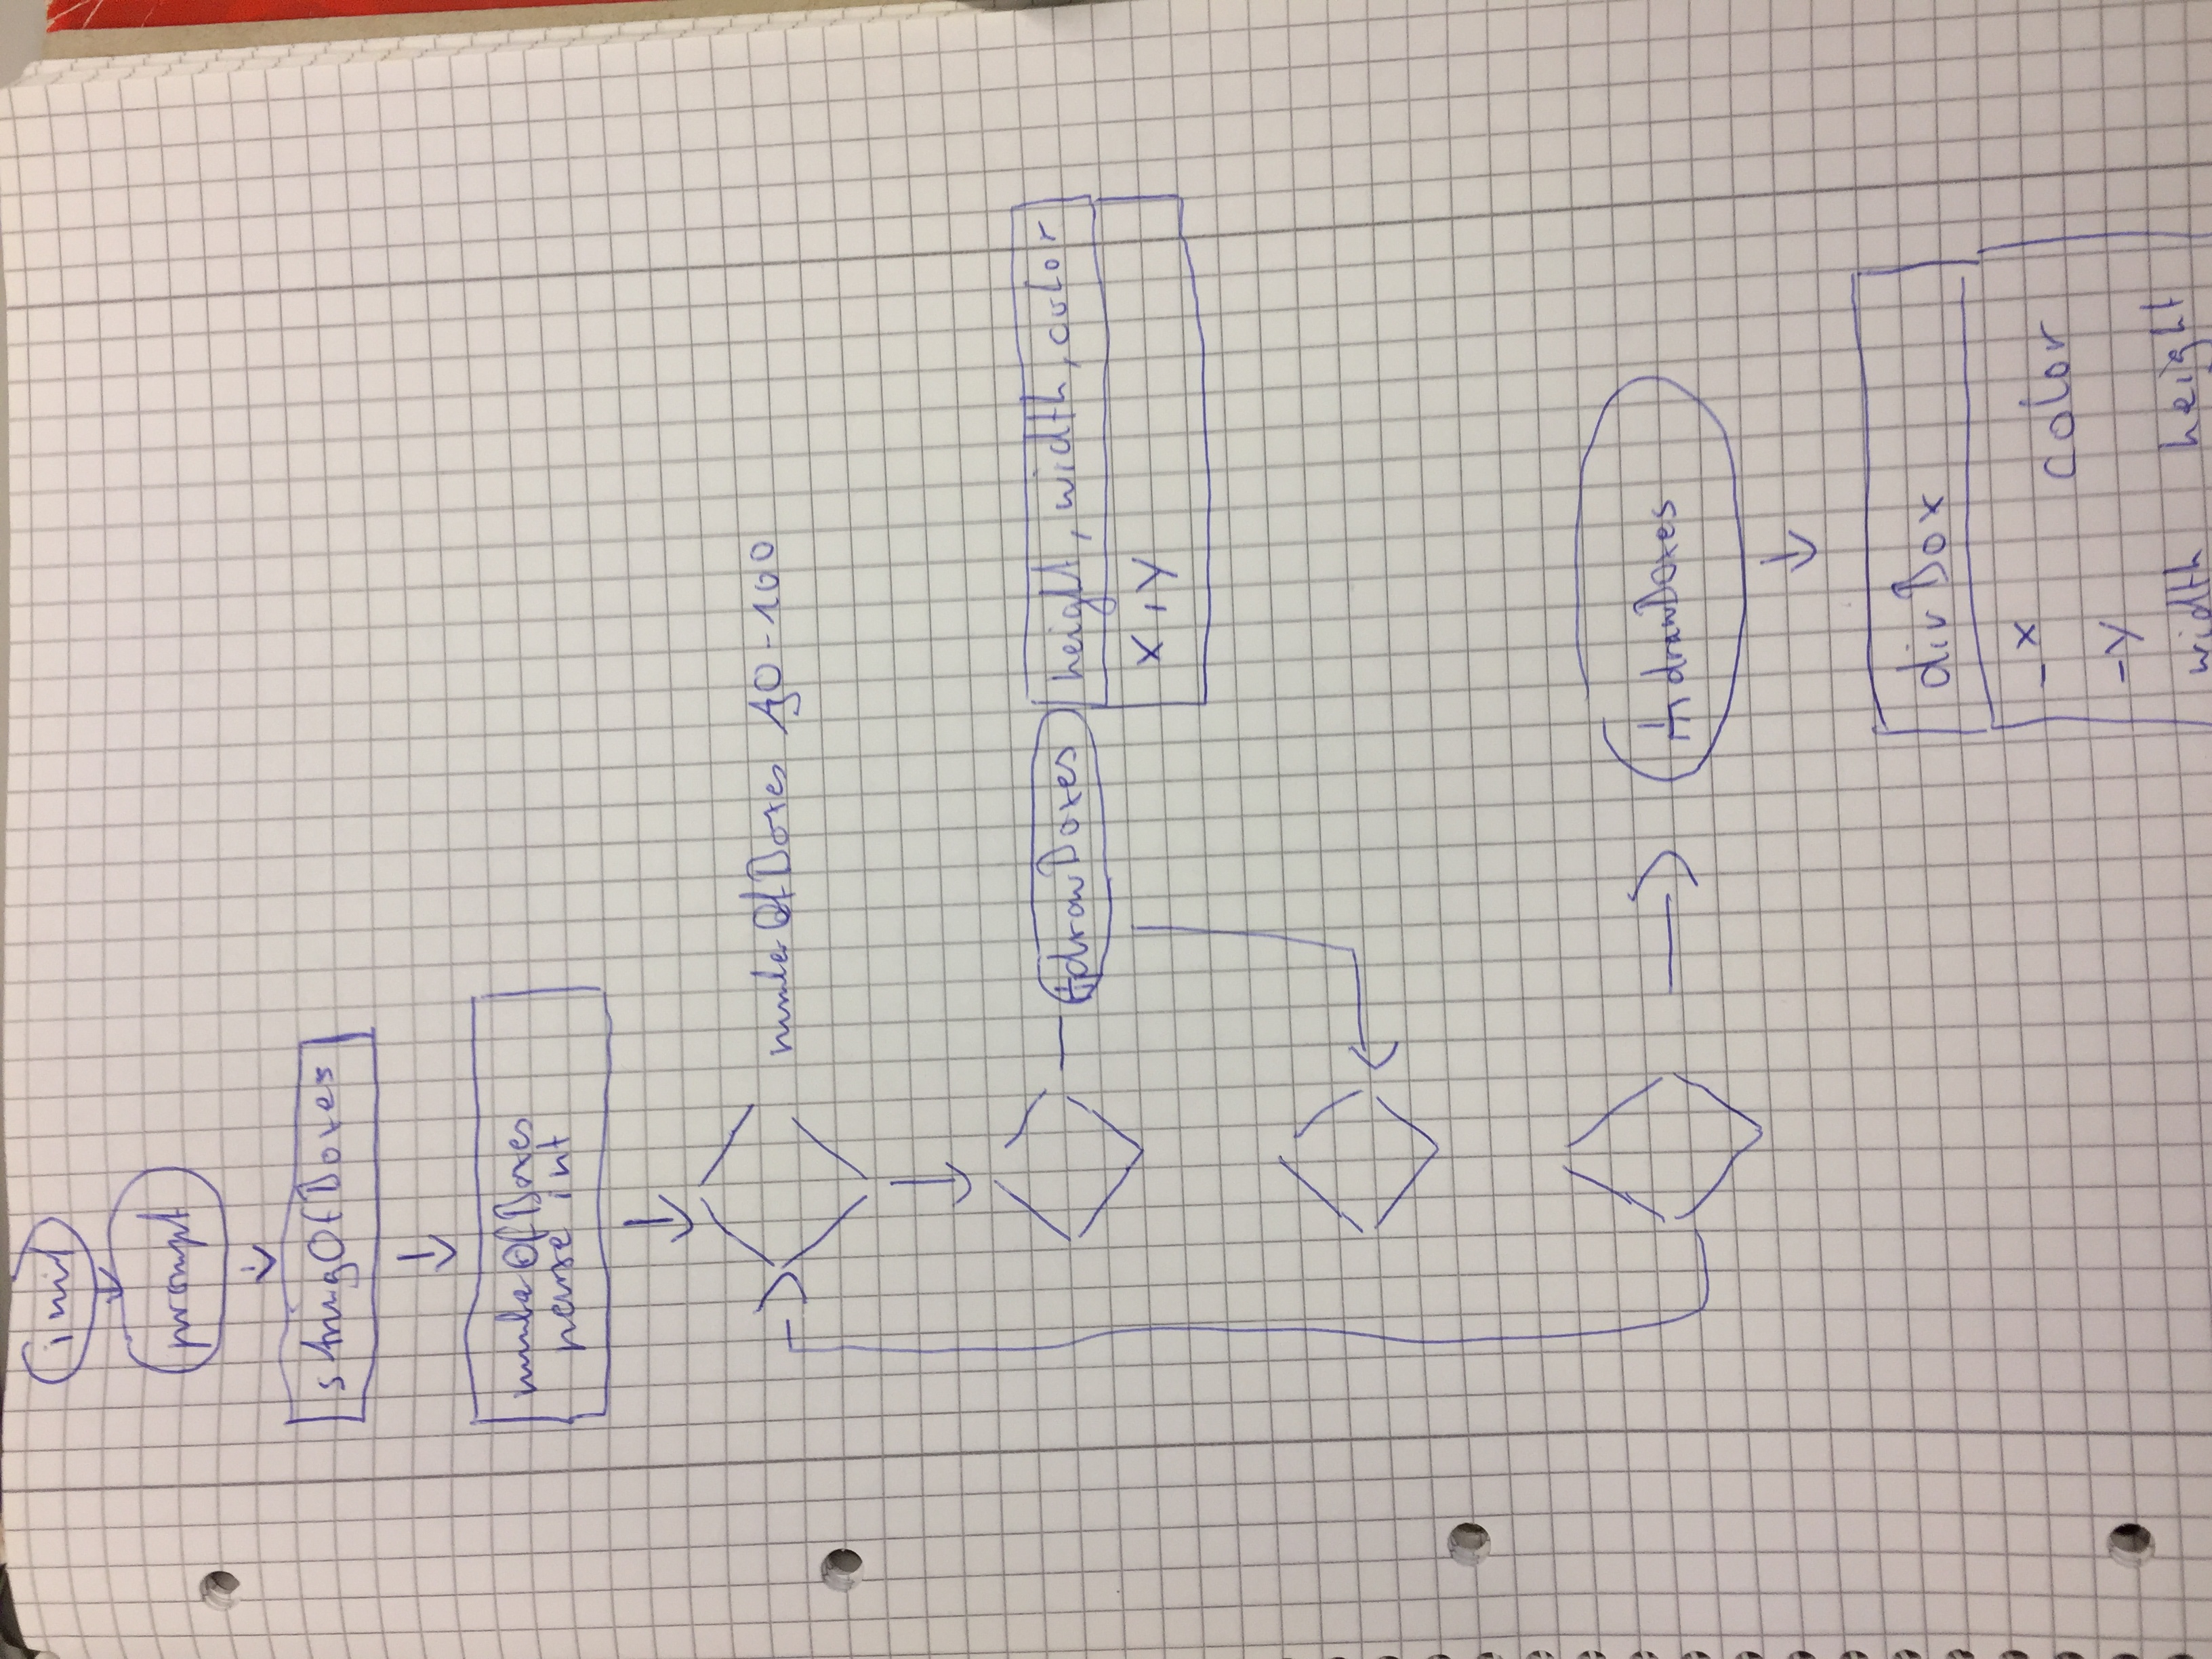 init
prompt
stringOfBoxes
numberOfBoxes
parse int
numberOfBoxes
drawBoxes height, width, color
x, y
drawBoxes
divBox
-x color
-y
width height